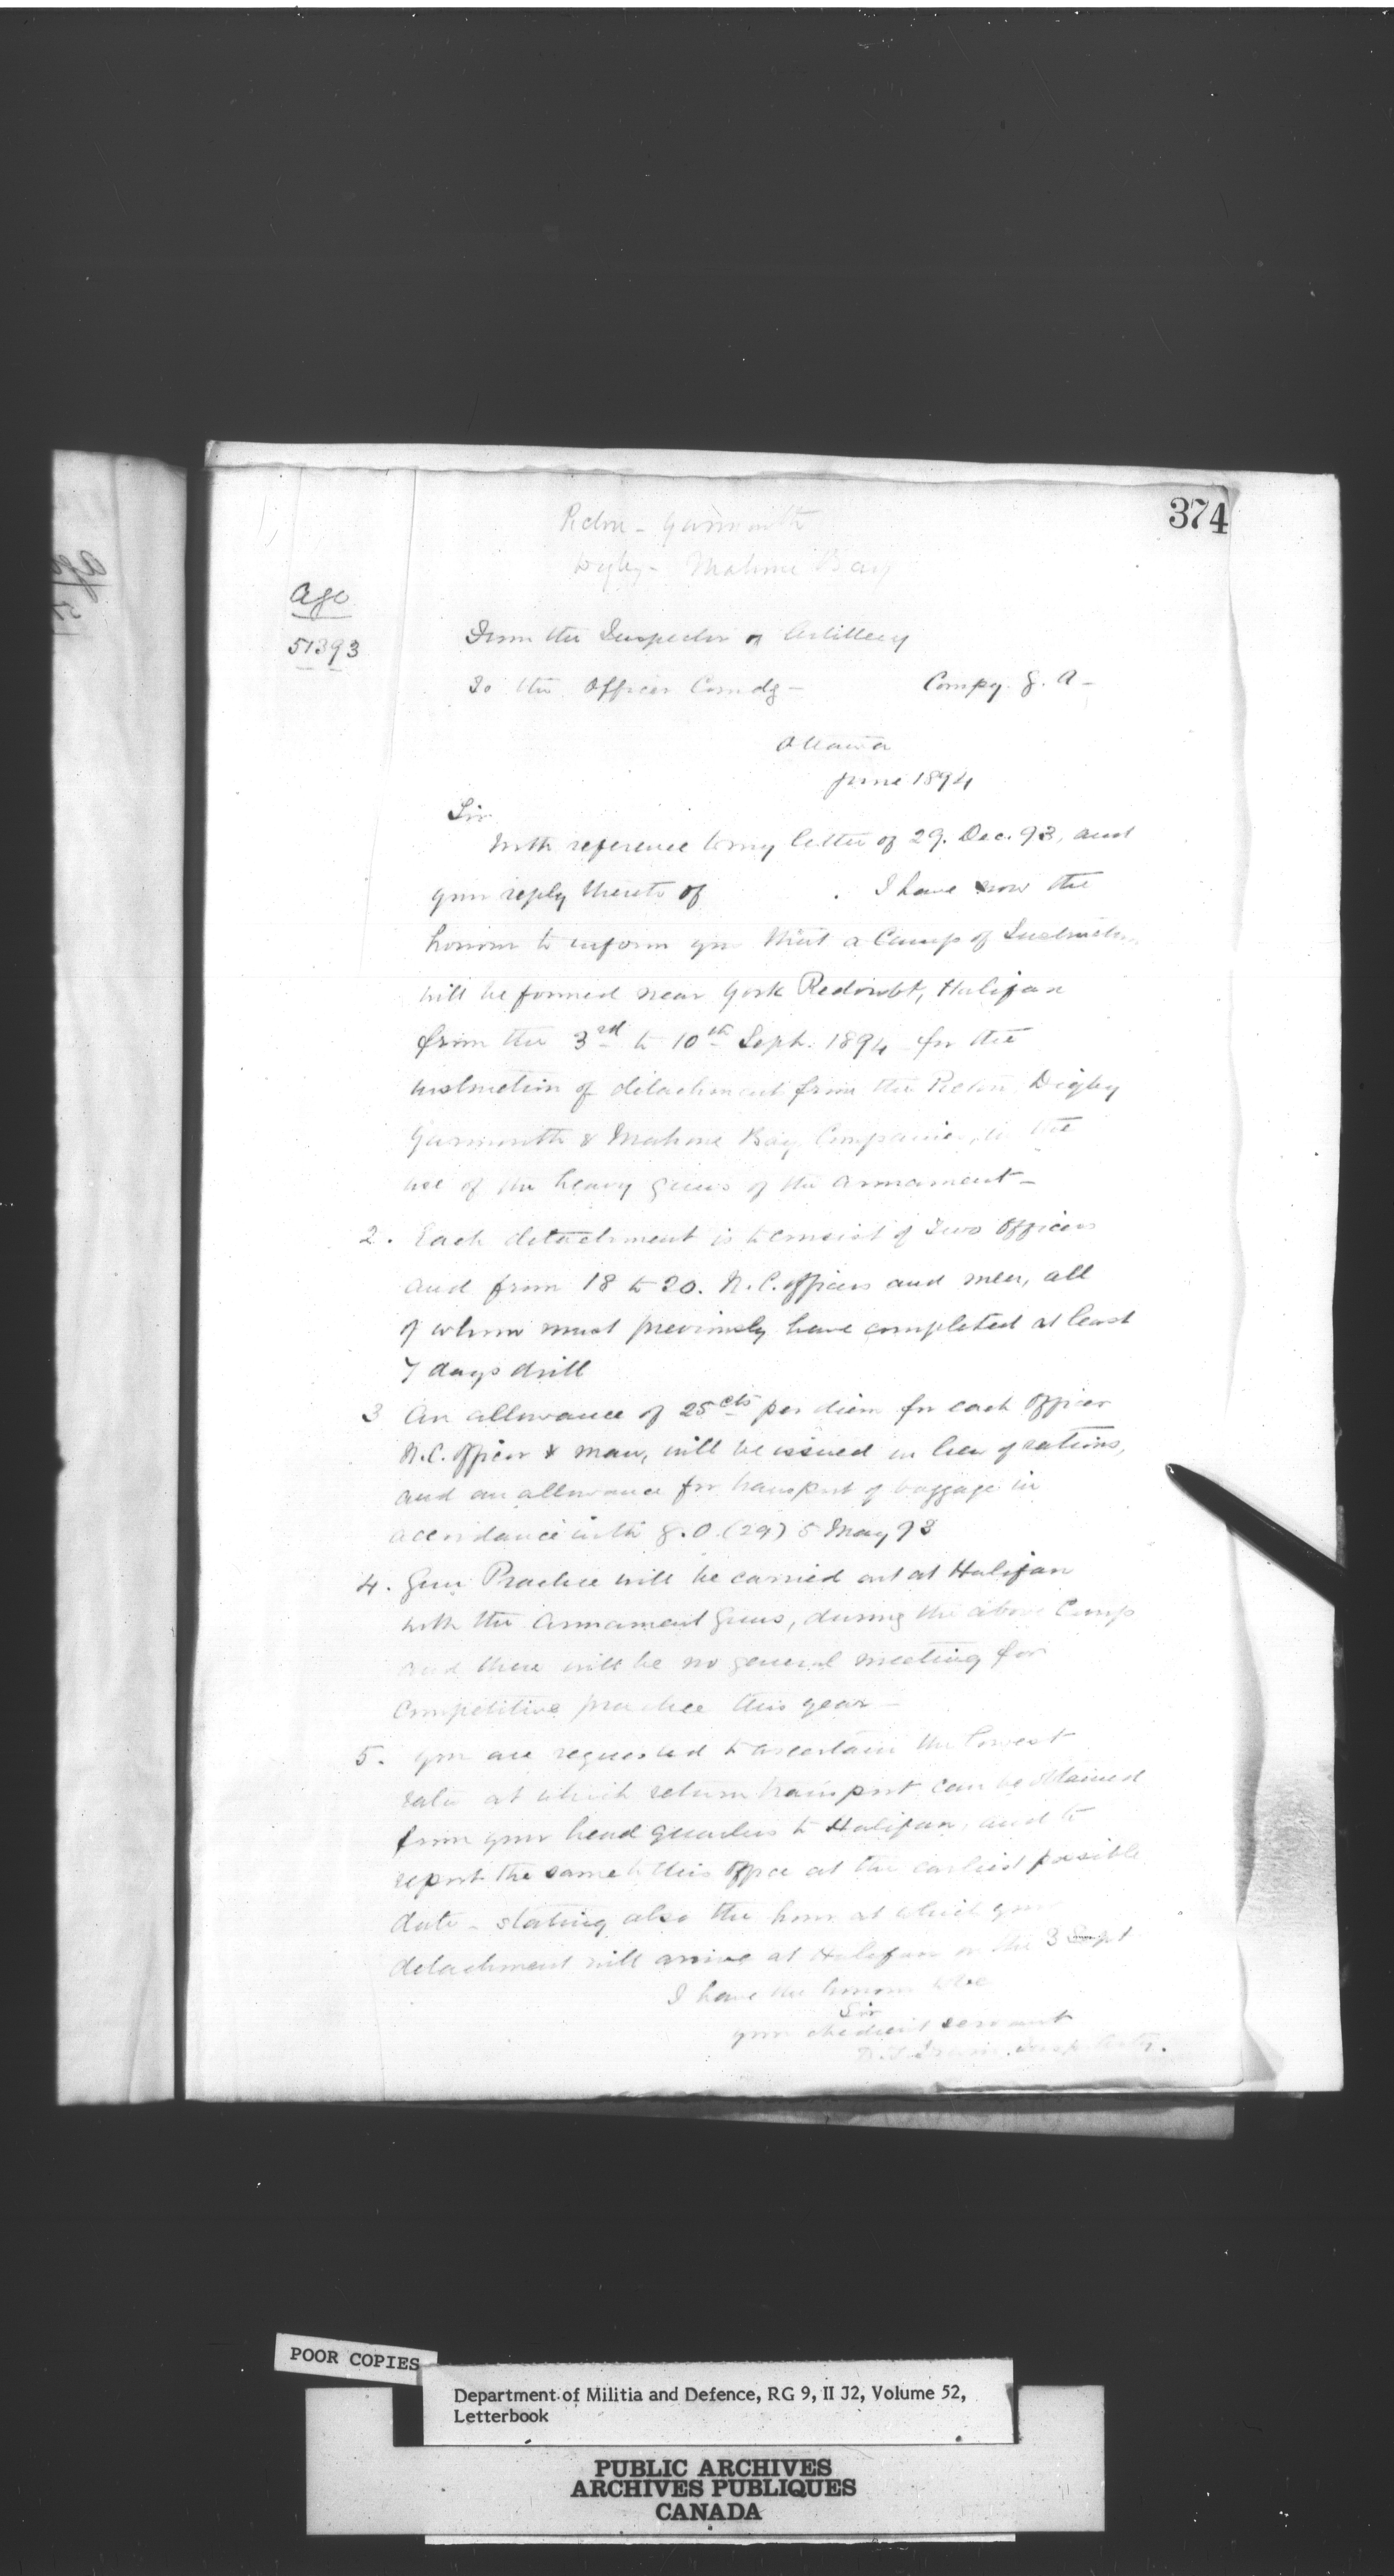 374
Pictou - Yarmouth
Digby - Mahone Bay
AGO
51393
From the Inspector of Artillery
To the Officer Comdg - Compy. G. A -
Ottawa
June 1894
Sir
With reference to my letter of 29. Dec. 93, and
your reply thereto of . I have now the
honour to inform you that a Camp of Instruction
will be formed near York Redoubt, Halifax
from the 3rd to 10th Sept. 1894 for the
instruction of detachment from the Pictou, Digby
Yarmouth & Mahone Bay Companies, in the
use of the heavy guns of the armament -
2. Each detachment is to consist of Two Officers
and from 18 to 20. N.C. officers and men, all
of whom must previously have completed at least
7 days drill
3 An allowance of 25cts per diem for each Officer
N.C. Officer & man, will be issued in lieu of rations,
and an allowance for transport of baggage in
accordance with G.O. (29) 5 May 93
4. Gun Practice will be carried out at Halifax
with the Armament Guns, during the above Camp
and there will be no general meeting for
Competitive practice this year -
5. You are requested to ascertain the lowest
rate at which return transport can be obtained
from your head quarters to Halifax, and to
report the same to this office at the earliest possible
date - stating also the hour at which your
detachment will arrive at Halifax on the 3 Sept
I have the honour to be
Sir
your obedient servant
Insp. Arty.
POOR COPIES
Department of Militia and Defence, RG 9, II J2, Volume 52,
Letterbook
PUBLIC ARCHIVES
ARCHIVES PUBLIQUES
CANADA